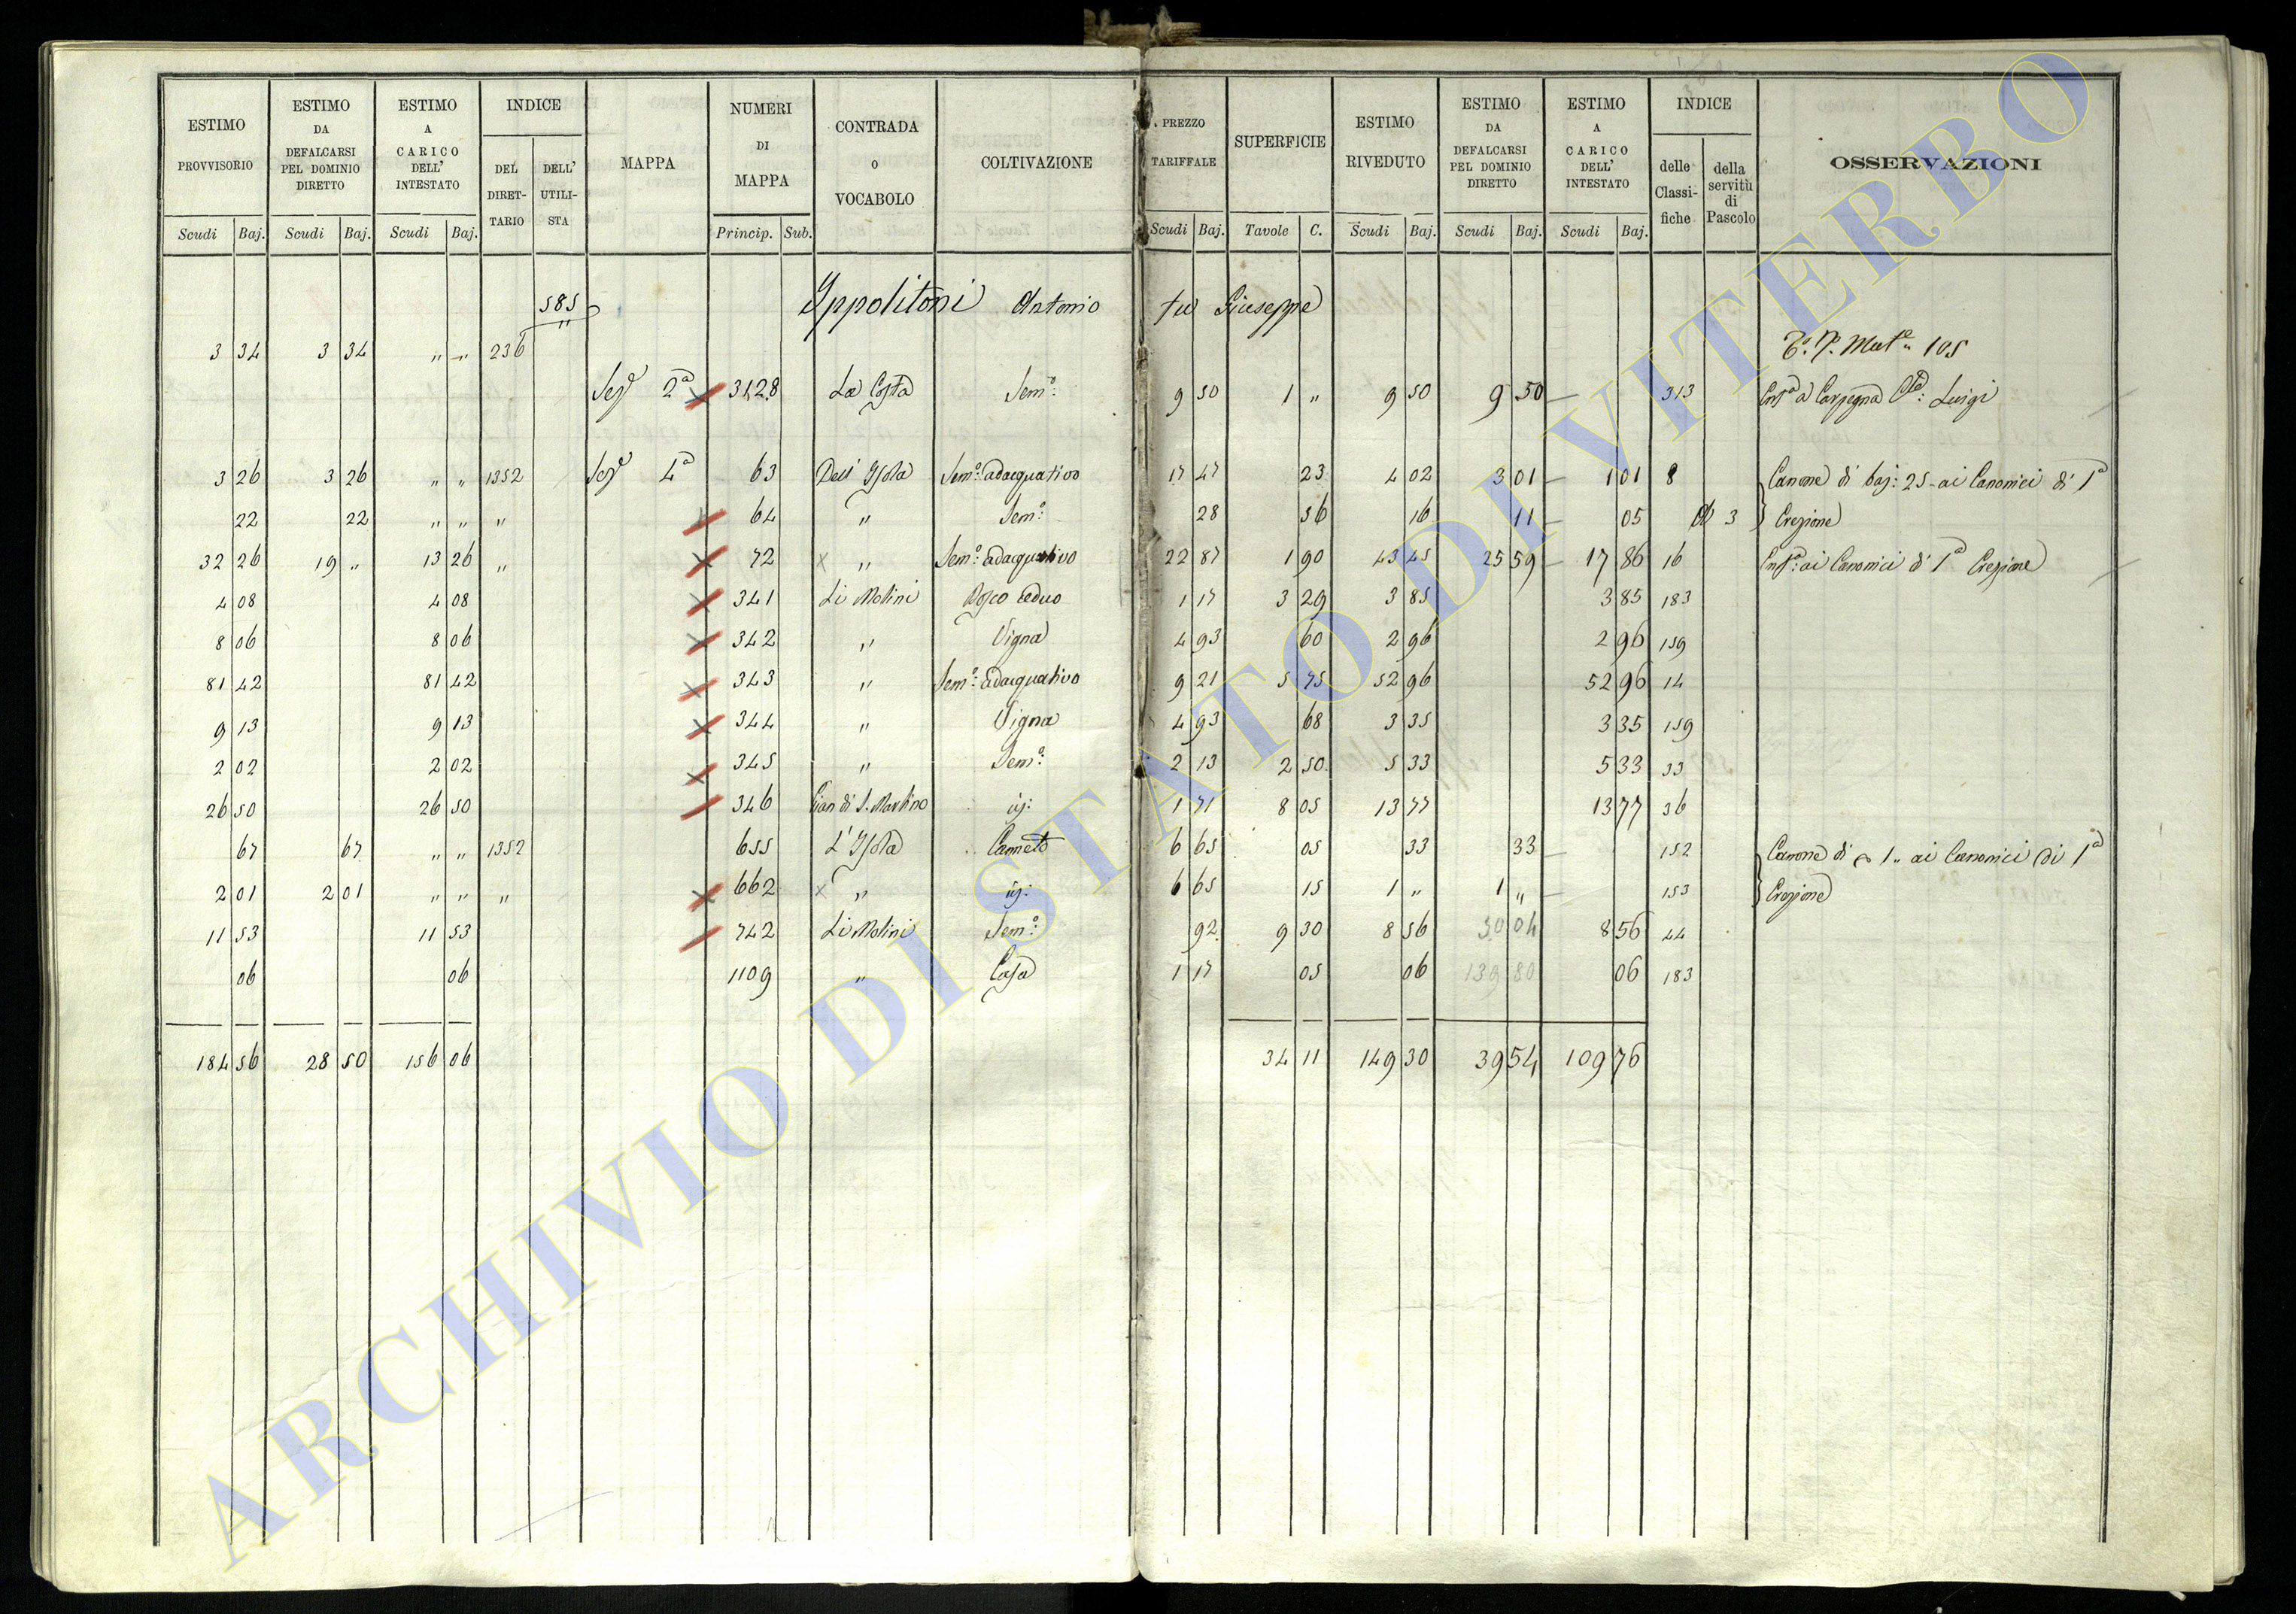 ESTIMO PROVVISORIO | ESTIMO DA DEFALCARSI PEL DOMINIO DIRETTO | ESTIMO A CARICO DELL' INTESTATO | INDICE DEL DIRETTARIO | DELL' UTILISTA | MAPPA | NUMERI DI MAPPA | CONTRADA O VOCABOLO | COLTIVAZIONE | PREZZO TARIFFALE | SUPERFICIE | ESTIMO RIVEDUTO | ESTIMO DA DEFALCARSI PEL DOMINIO DIRETTO | ESTIMO A CARICO DELL' INTESTATO | INDICE delle Classifiche | della servitù di Pascolo | OSSERVAZIONI
Scudi Baj. | Scudi Baj. | Scudi Baj. | Princip. Sub. | Scudi Baj. | Tavole C. | Scudi Baj. | Scudi Baj. | Scudi Baj.
585 Ippolitoni Antonio fu Giuseppe
3 34 | 3 34 | " " | 236 | 105
2ª | 3128 | La Costa | Sem.º | 9 50 | 1 " | 9 50 | 9 50 — | 313 | Enfª a Carpegna Luigi
3 26 | 3 26 | " " | 1352 | 4ª | 63 | Dell' Isola | Sem.º adacquativo | 17 47 | 23 | 4 02 | 3 01 — | 1 01 | 8 | Canone di baj: 25 ai Canonici di 1ª
22 | 22 | " " | " | 64 | " | Sem.º | 28 | 56 | 16 | 11 — | 05 | 3 | Erezione
32 26 | 19 " | 13 26 | " | 72 | " | Sem.º adacquativo | 22 87 | 1 90 | 43 45 | 25 59 — | 17 86 | 16 | Enfª ai Canonici di 1ª Erezione
4 08 | 4 08 | 341 | Li Molini | Bosco ceduo | 1 17 | 3 29 | 3 85 | 3 85 | 183
8 06 | 8 06 | 342 | " | Vigna | 4 93 | 60 | 2 96 | 2 96 | 159
81 42 | 81 42 | 343 | " | Sem.º adacquativo | 9 21 | 5 75 | 52 96 | 52 96 | 14
9 13 | 9 13 | 344 | " | Vigna | 4 93 | 68 | 3 35 | 3 35 | 159
2 02 | 2 02 | 345 | " | Sem.º | 2 13 | 2 50 | 5 33 | 5 33 | 33
26 50 | 26 50 | 346 | Pian di S. Martino | 1 71 | 8 05 | 13 77 | 13 77 | 36
67 | 67 | " " | 1352 | 655 | L'Isola | Canneto | 6 65 | 05 | 33 | 33 — | 152 | Canone di 1 " ai Canonici di 1ª
2 01 | 2 01 | " " | " | 662 | " | 6 65 | 15 | 1 " | 1 " — | 153 | Erezione
11 53 | 11 53 | 742 | Li Molini | Sem.º | 92 | 9 30 | 8 56 | 30 04 | 8 56 | 44
06 | 06 | 1109 | " | Casa | 1 17 | 05 | 06 | 139 80 | 06 | 183
184 56 | 28 50 | 156 06 | 34 11 | 149 30 | 39 54 | 109 76
ARCHIVIO DI STATO DI VITERBO